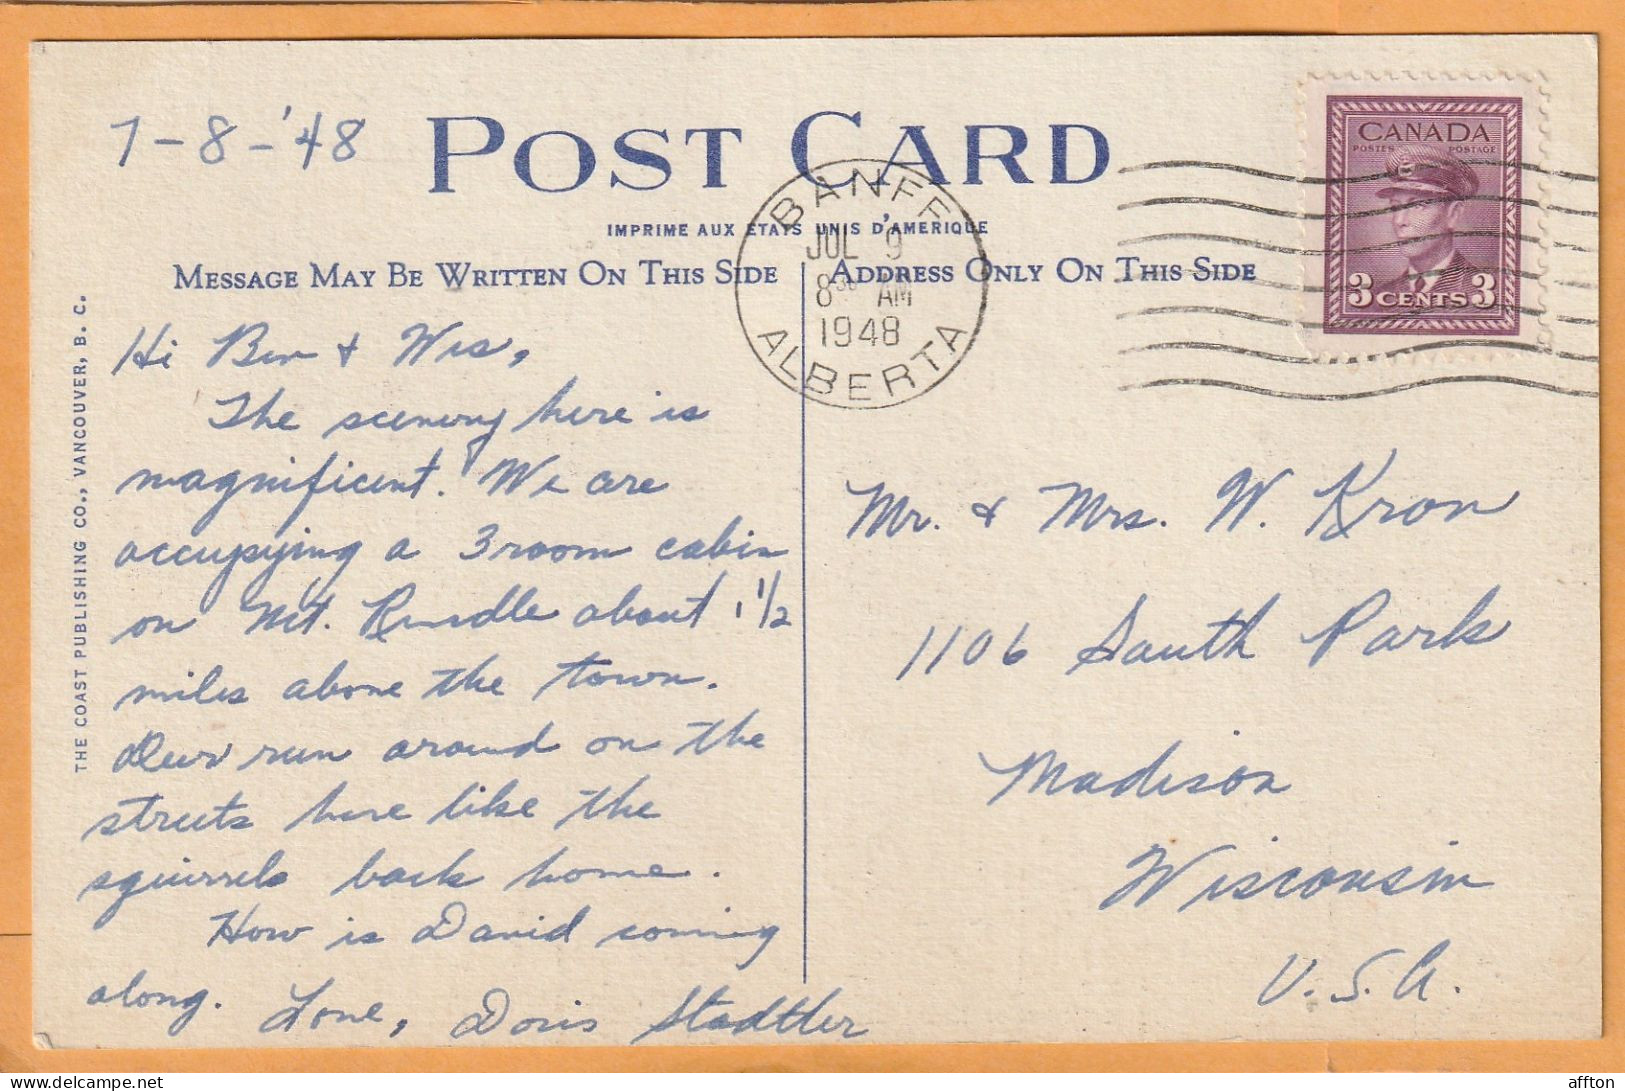 7-8-'48
POST CARD
IMPRIME AUX ETATS UNIS D'AMERIQUE
MESSAGE MAY BE WRITTEN ON THIS SIDE
ADDRESS ONLY ON THIS SIDE
BANFF
JUL 9
8 30 AM
1948
ALBERTA
CANADA
POSTES POSTAGE
3 CENTS 3
THE COAST PUBLISHING CO., VANCOUVER, B. C.
Hi Ben + Wis,
The scenery here is
magnificent. We are
occupying a 3 room cabin
on Mt. Rundle about 1 1/2
miles above the town.
Deer run around on the
streets here like the
squirrels back home.
How is David coming
along. Love, Doris Stadtler
Mr. & Mrs. W. Kron
1106 South Park
Madison
Wisconsin
U.S.A.
affton